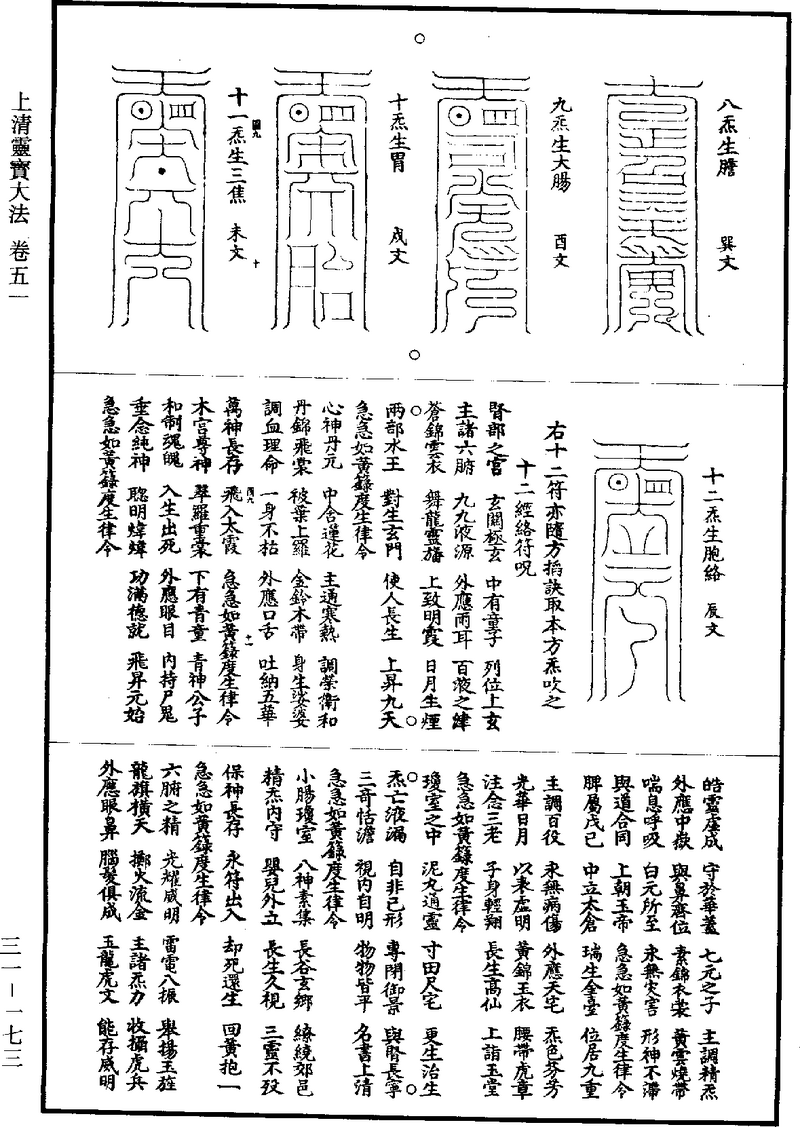 上清靈寶大法 卷五一
三一－一七三
八炁生膽 巽文
九炁生大腸 酉文
十炁生胃 戌文
十一炁生三焦 未文
十
十二炁生胞絡 辰文
右十二符亦隨方搯訣取本方炁吹之
十二經絡符呪
腎部之宮 玄關極玄 中有童子 列位上玄
主諸六腑 九九液源 外應兩耳 百液之津
蒼錦雲衣 舞龍靈旛 上致明霞 日月生煙
兩部水王 對生玄門 使人長生 上昇九天
急急如黃籙度生律令
心神丹元 中含蓮花 主適寒熱 調榮衛和
丹錦飛裳 被葉上羅 金鈴木帶 身生娑婆
調血理命 一身不枯 外應口舌 吐納五華
萬神長存 飛入太霞 急急如黃籙度生律令
十一
木宮尊神 翠羅重裳 下有青童 青神公子
和制魂魄 入生出死 外應眼目 內持尸鬼
垂念純神 聰明煒煒 功滿德就 飛昇元始
急急如黃籙度生律令
皓靈虛成 守於華蓋 七元之子 主調精炁
外應中嶽 與鼻齊位 素錦衣裳 黃雲燒帶
喘息呼吸 白元所至 永無灾害 形神不滯
與道合同 上朝玉帝 急急如黃籙度生律令
脾屬戊己 中立太倉 瑞生金臺 位居九重
主調百役 永無病傷 外應天宅 炁色芬芳
光華日月 以表虛明 黃錦玉衣 腰帶虎章
注念三老 子身輕翔 長生高仙 上詣玉堂
急急如黃籙度生律令
瓊室之中 泥丸通靈 寸田尺宅 更生治生
炁亡液漏 自非己形 專閉御景 與腎長寧
三奇恬澹 視內自明 物物皆平 名書上清
急急如黃籙度生律令
小腸瓊室 八神素集 長谷玄鄉 繚繞郊邑
精炁內守 嬰兒外立 長生久視 三靈不歿
保神長存 永符出入 却死還生 回黃抱一
急急如黃籙度生律令
六腑之精 光耀威明 雷電八振 舉揚玉旌
龍旗橫天 擲火流金 主諸炁力 收攝虎兵
外應眼鼻 腦髮俱成 五龍虎文 能存威明